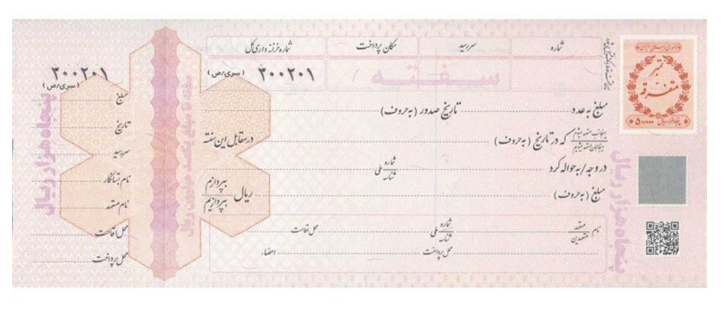 شماره
سررسید
مکان پرداخت
شماره خزانه داری کل
سفته
۳۰۰۲۰۱ (سری/ص)
مبلغ به عدد
تاریخ صدور (به حروف)
که در تاریخ (به حروف)
در مقابل این سفته
در وجه/به حواله کرد
شماره ملی
شناسه
مبلغ (به حروف)
ریال بپردازم
بپردازیم
نام متعهد
متعهدین
شماره ملی
شناسه
محل اقامت
محل پرداخت
امضاء
تمبر
متفرقه
۵۰,۰۰۰
پنجاه هزار ریال
سفته تا مبلغ یکصد میلیون ریال
۳۰۰۲۰۱
(سری/ص)
مبلغ
تاریخ
سررسید
نام بستانکار
نام متعهد
محل اقامت
محل پرداخت
پنجاه هزار ریال